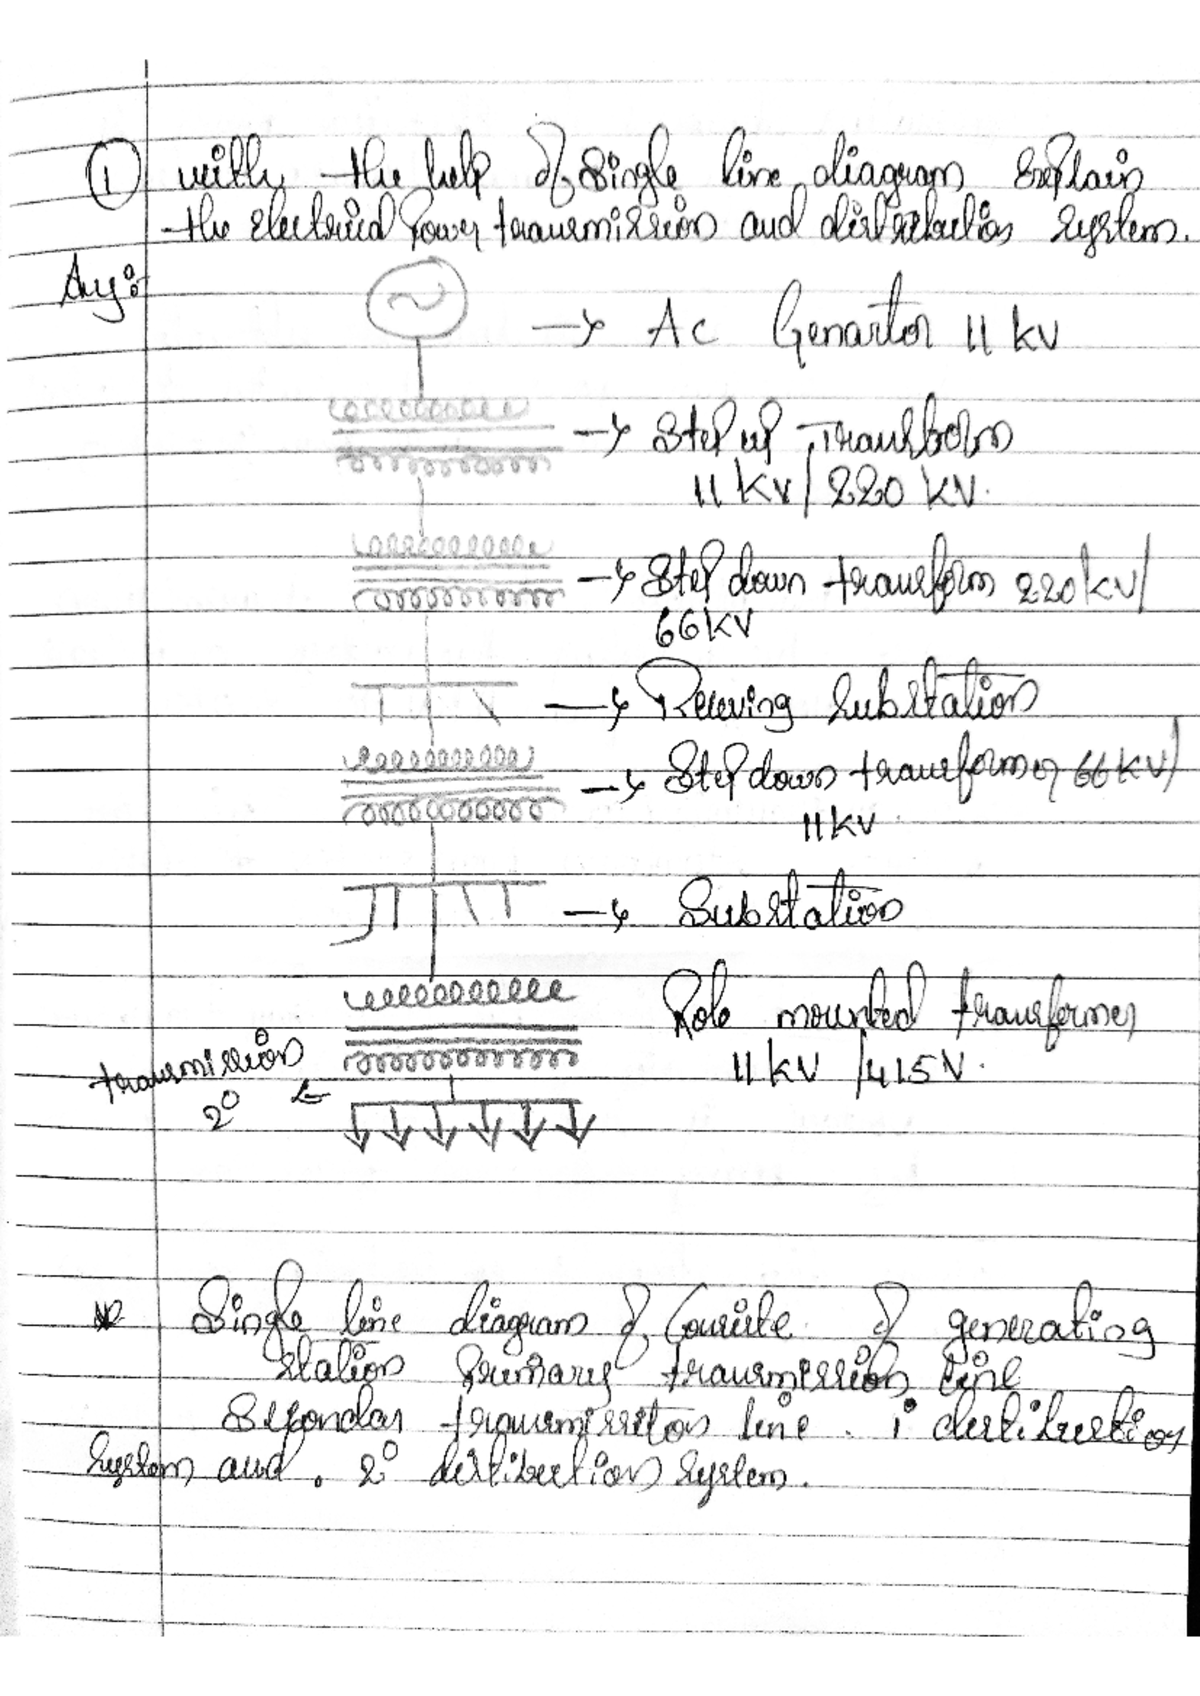 ① with the help of single line diagram Explain
the electrical Power transmission and distribution system.
Ans:
→ AC Genartor 11 kv
→ Step up Transform
11 kv / 220 kv.
→ Step down transform 220 kv/
66 kv
→ Receving Substation
→ Step down transformer 66 kv/
11 kv
→ Substation
Pole mounted transformer
11 kv / 415 V.
transmission
2°
Single line diagram of of generating
station Primary transmission line
Secondar transmission line. 1 distibution
System and . 2° distibution System.